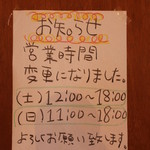 お知らせ
営業時間
変更になりました。
(土) 12:00〜18:00
(日) 11:00〜18:00
よろしくお願い致します。